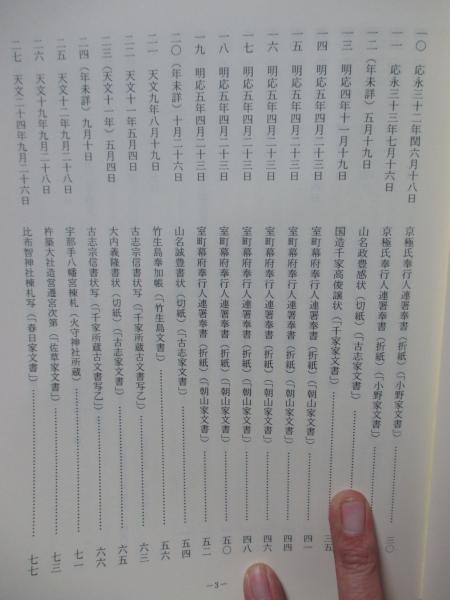 一〇 応永三十二年閏六月十八日 京極氏奉行人連署奉書(折紙)(「小野家文書」)……三〇
一一 応永三十三年七月十六日 京極氏奉行人連署奉書(折紙)(「小野家文書」)……
一二 (年未詳)五月十九日 山名政豊感状(切紙)(「古志家文書」)……
一三 明応四年十一月十九日 国造千家高俊譲状(「千家家文書」)……三五
一四 明応五年四月二十三日 室町幕府奉行人連署奉書(折紙)(「朝山家文書」)……四一
一五 明応五年四月二十三日 室町幕府奉行人連署奉書(折紙)(「朝山家文書」)……四四
一六 明応五年四月二十三日 室町幕府奉行人連署奉書(折紙)(「朝山家文書」)……四六
一七 明応五年四月二十三日 室町幕府奉行人連署奉書(折紙)(「朝山家文書」)……四八
一八 明応五年四月二十三日 室町幕府奉行人連署奉書(折紙)(「朝山家文書」)……五〇
一九 明応五年四月二十三日 室町幕府奉行人連署奉書(折紙)(「朝山家文書」)……五二
二〇 (年未詳)十月二十六日 山名誠豊書状(切紙)(「古志家文書」)……五四
二一 天文九年八月十九日 竹生島奉加帳(「竹生島文書」)……五六
二二 天文十一年五月四日 古志宗信書状写(「千家所蔵古文書写乙」)……六三
二三 (天文十一年)五月四日 大内義隆書状(切紙)(「古志家文書」)……六五
二四 (年未詳)九月十日 古志宗信書状写(「千家所蔵古文書写乙」)……六六
二五 天文十二年九月二十八日 宇那手八幡宮棟札(火守神社所蔵)……七一
二六 天文十九年九月二十八日 杵築大社造営遷宮次第(「佐草家文書」)……七三
二七 天文二十四年九月二十六日 比布智神社棟札写(「春日家文書」)……七七
—3—